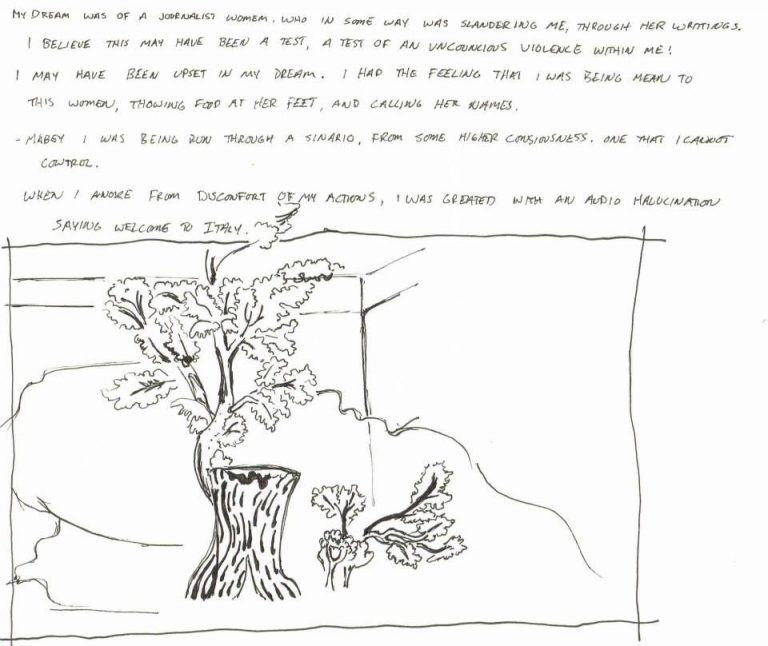 MY DREAM WAS OF A JOURNALIST WOMEM. WHO IN SOME WAY WAS SLANDERING ME, THROUGH HER WRITINGS.
I BELIEVE THIS MAY HAVE BEEN A TEST, A TEST OF AN UNCOUNCIOUS VIOLENCE WITHIN ME!
I MAY HAVE BEEN UPSET IN MY DREAM. I HAD THE FEELING THAT I WAS BEING MEAN TO
THIS WOMEN, THOWING FOOD AT HER FEET, AND CALLING HER NAMES.
- MABEY I WAS BEING RUN THROUGH A SINARIO, FROM SOME HIGHER CONSIOUSNESS. ONE THAT I CANNOT
CONTROL.
WHEN I AWOKE FROM DISCONFORT OF MY ACTIONS, I WAS GREATED WITH AN AUDIO HALUCINATION
SAYING WELCOME TO ITALY.